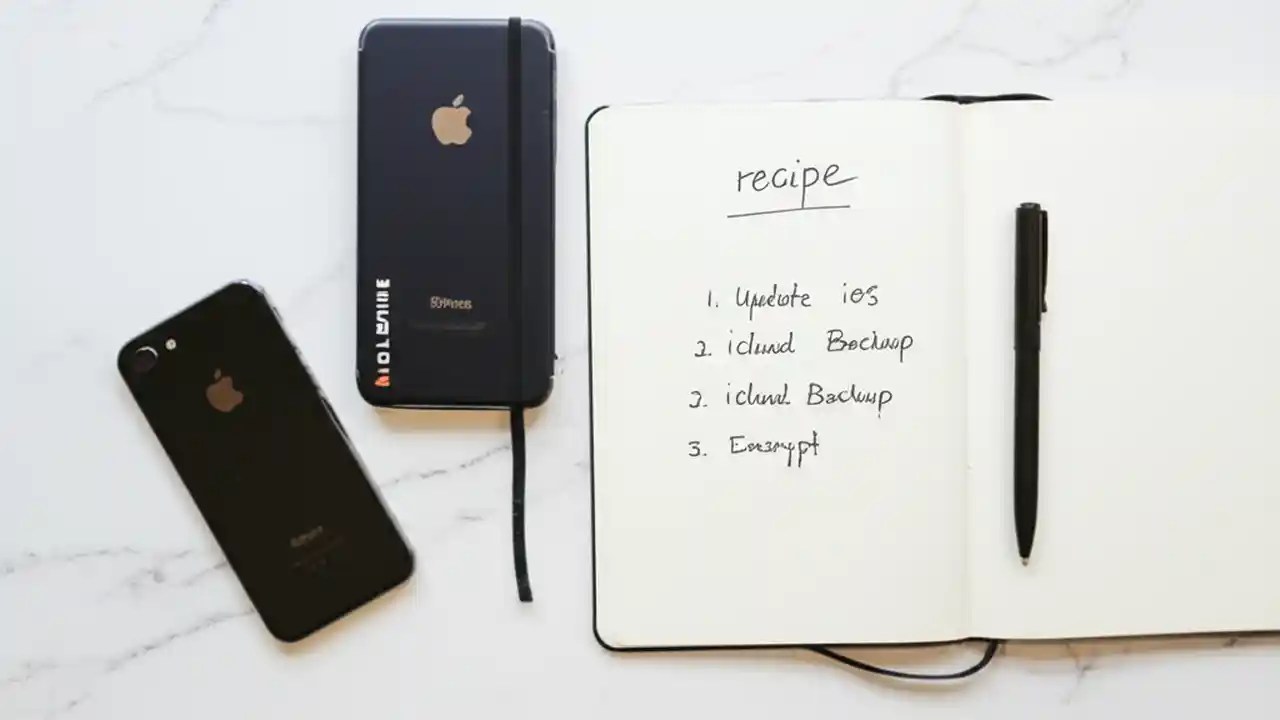 recipe
1. Update ios
2. icloud Backup
2. icloud Backup
3. Encrypt